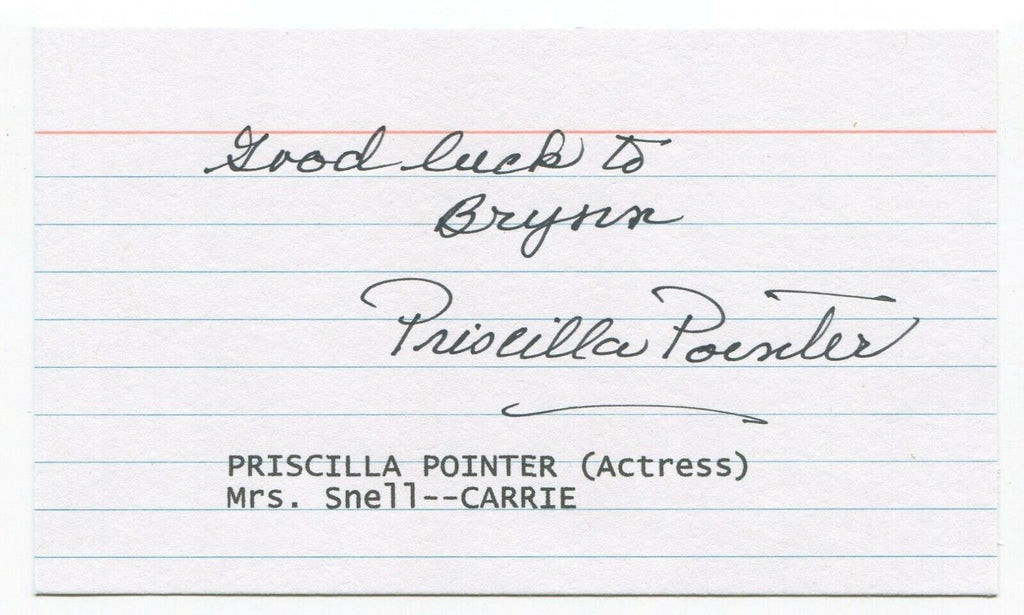 Good luck to
Brynn
Priscilla Pointer
PRISCILLA POINTER (Actress)
Mrs. Snell--CARRIE